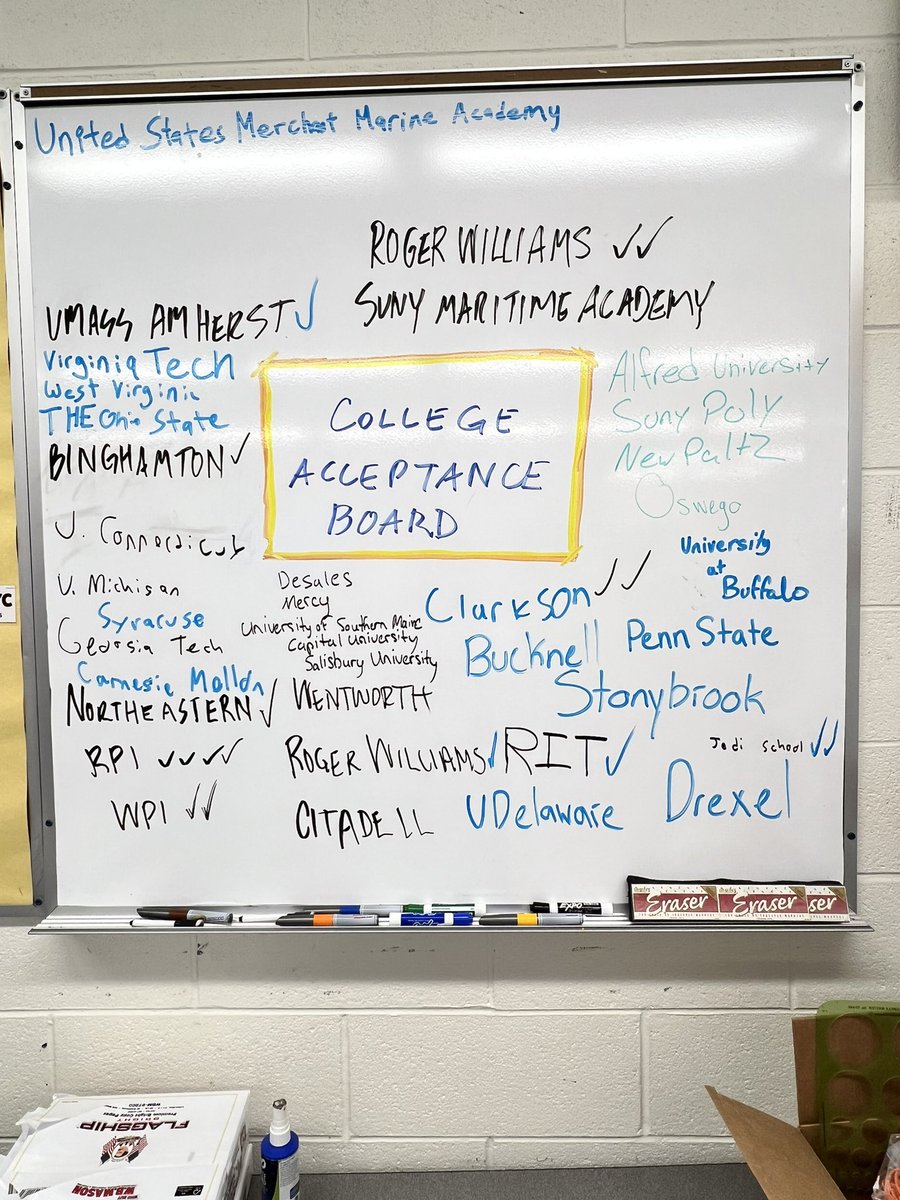 United States Merchat Marine Academy
ROGER WILLIAMS ✓✓
UMASS AMHERST ✓
SUNY MARITIME ACADEMY
Virginia Tech
West Virginia
THE Ohio State
BINGHAMTON ✓
COLLEGE
ACCEPTANCE
BOARD
Alfred University
Suny Poly
New Paltz
Oswego
University
at
Buffalo
U. Connecticut
U. Michigan
Syracuse
Georgia Tech
Carnegie Mollon
NORTHEASTERN ✓
RPI ✓✓✓✓
WPI ✓✓
Desales
Mercy
University of Southern Maine
Capital University
Salisbury University
WENTWORTH
ROGER WILLIAMS ✓
CITADELL
Clarkson ✓✓
Bucknell
Penn State
Stonybrook
RIT ✓
Jedi School ✓✓
UDelaware
Drexel
Eraser
Eraser
ser
FLAGSHIP
W.B. MASON